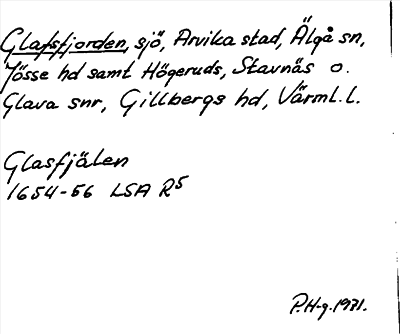 Glafsfjorden, sjö, Arvika stad, Älgå sn,
Jösse hd samt Högeruds, Stavnäs o.
Glava snr, Gillbergs hd, Värml. l.
Glasfjälen
1654-56 LSA R5
P.H-g. 1971.